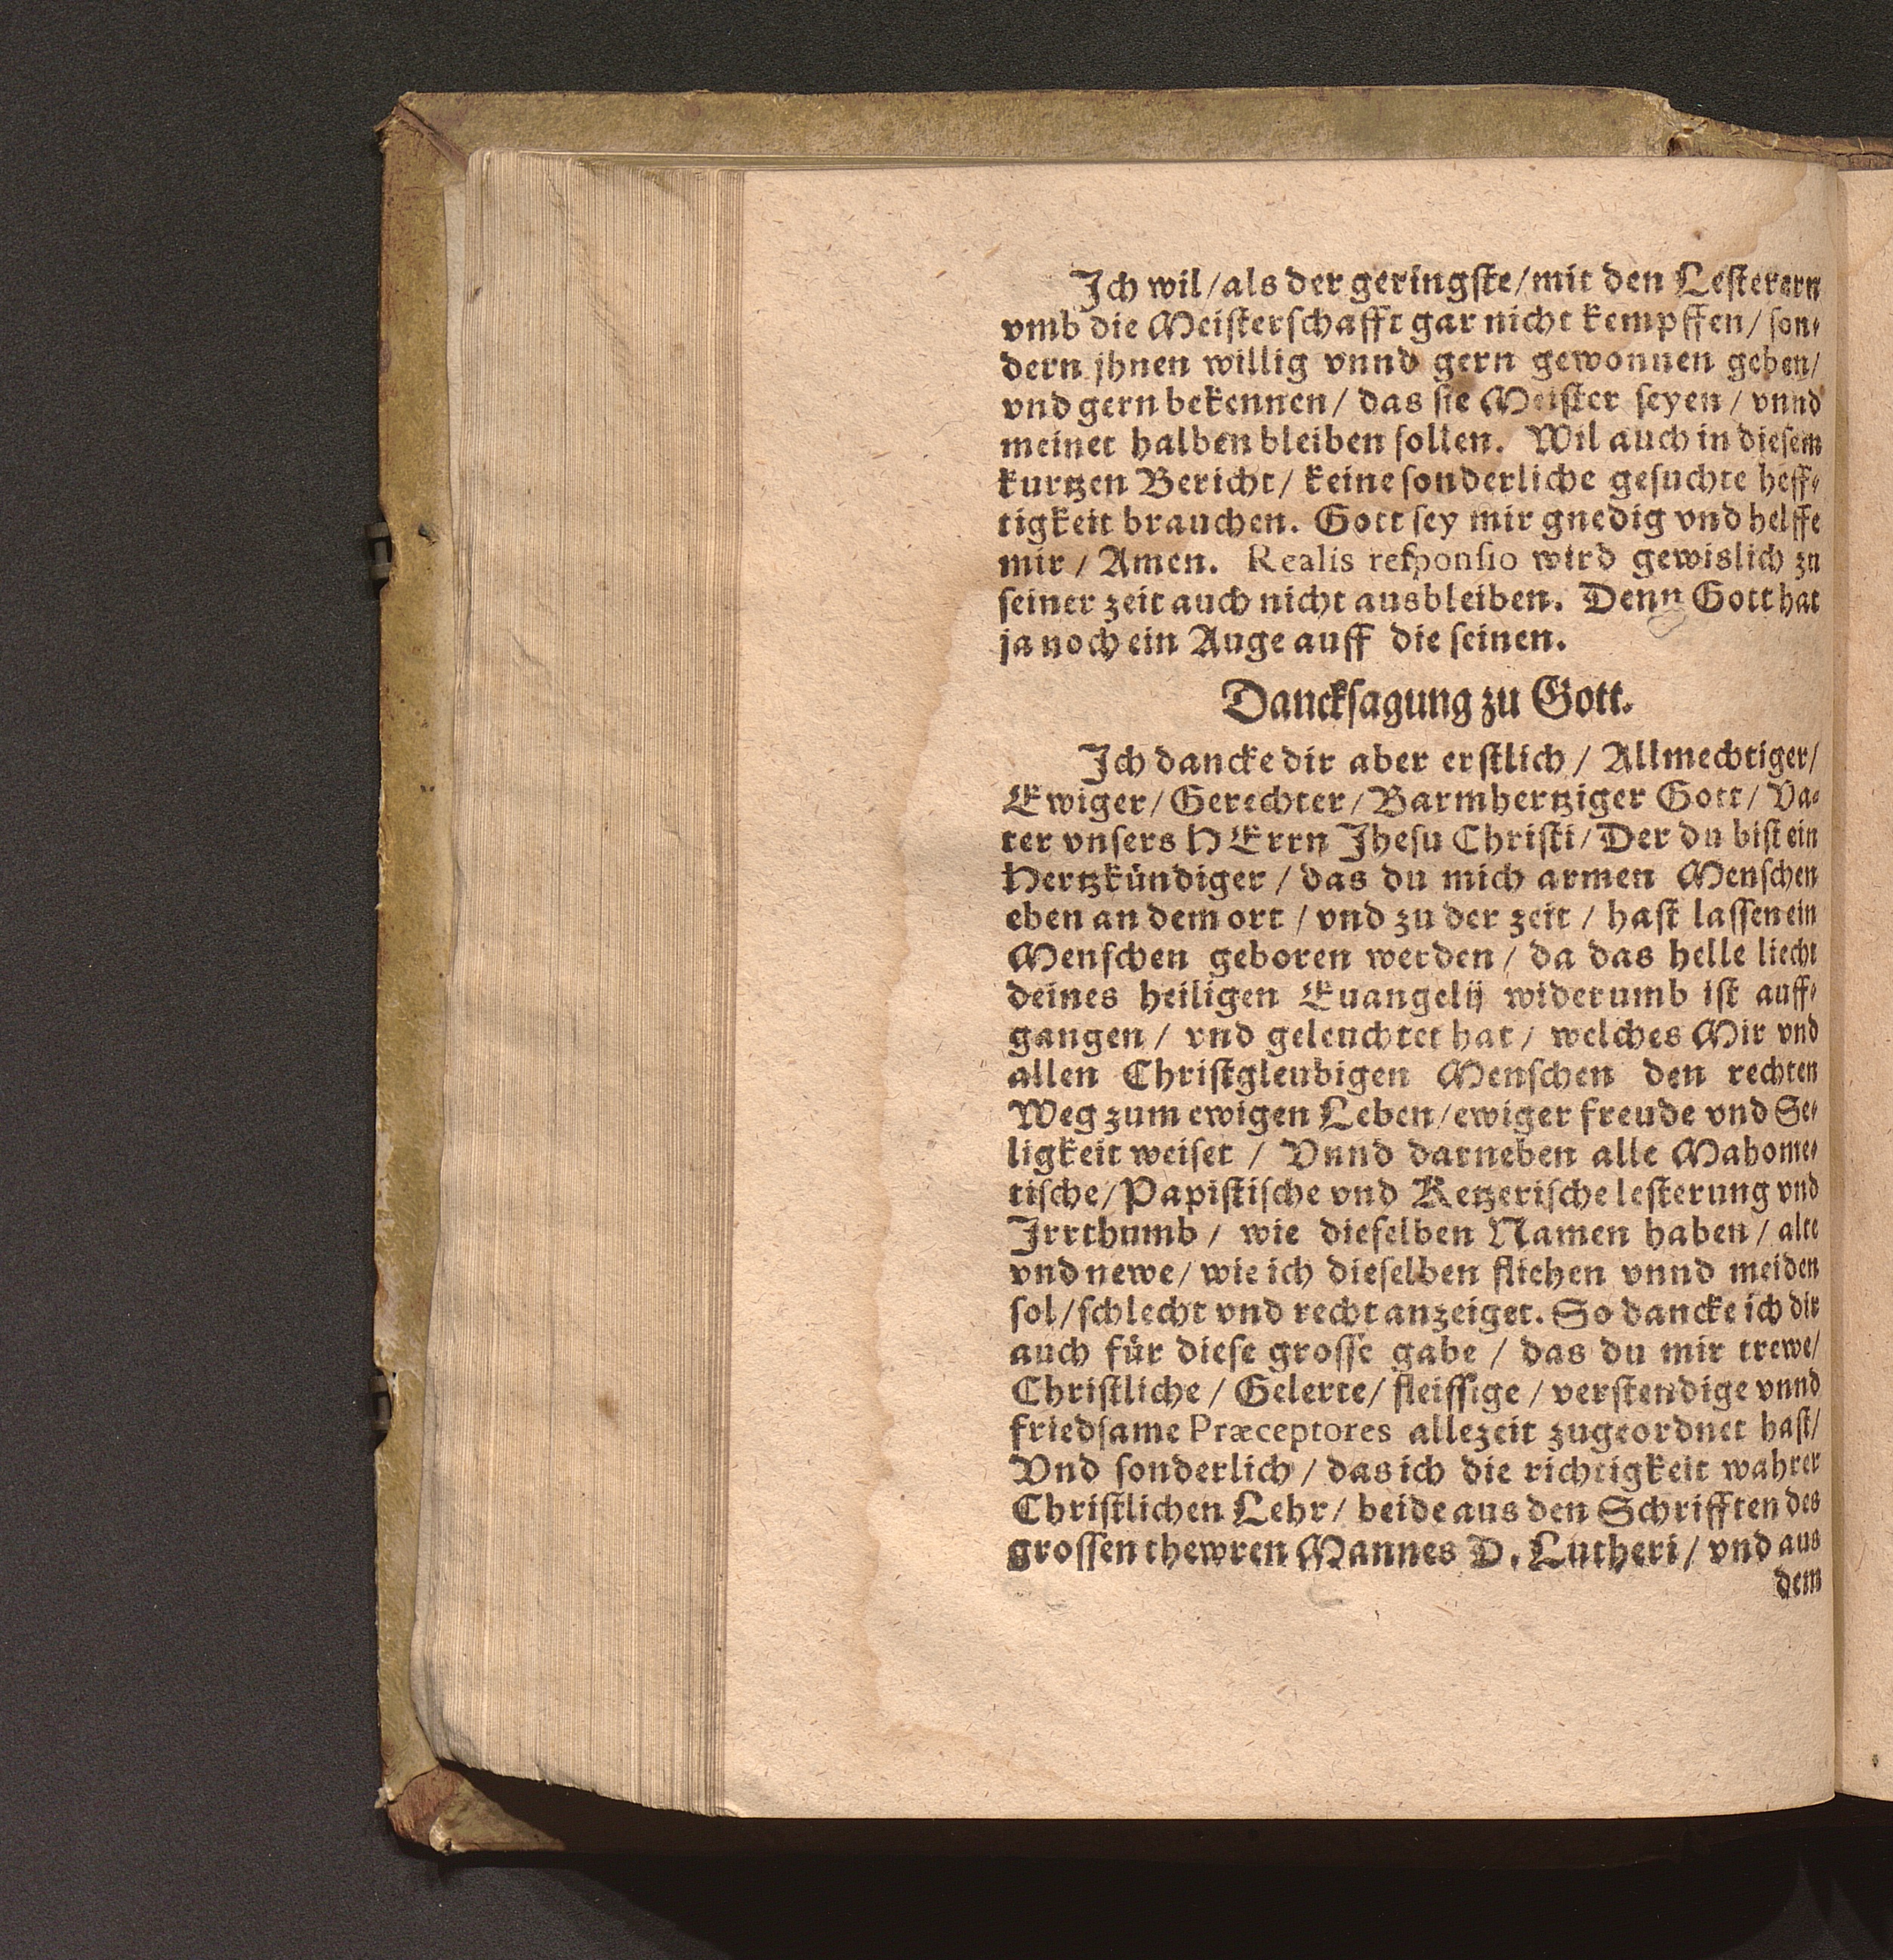 Ich wil/als der geringſte/mit den Leſterern
vmb die Meiſterſchafft gar nicht kempffen/ ſon⸗
dern jhnen willig vnnd gern gewonnen geben/
vnd gern bekennen/ das ſie Meiſter ſeyen/ vnnd
meinet halben bleiben ſollen. Wil auch in dieſem
kurtzen Bericht/ keine ſonderliche geſuchte heff⸗
tigkeit brauchen. Gott ſey mir gnedig vnd helffe
mir/ Amen. Realis reſponſio wird gewislich zu
ſeiner zeit auch nicht ausbleiben. Denn Gott hat
ja noch ein Auge auff die ſeinen.
Danckſagung zu Gott.
Ich dancke dir aber erſtlich/ Allmechtiger/
Ewiger/ Gerechter/ Barmhertziger Gott/ Va⸗
ter vnſers HErrn Jheſu Chriſti/ Der du biſt ein
Hertzkündiger/ das du mich armen Menſchen
eben an dem ort/ vnd zu der zeit/ haſt laſſen ein
Menſchen geboren werden/ da das helle liecht
deines heiligen Euangelij widerumb iſt auff⸗
gangen/ vnd geleuchtet hat/ welches Mir vnd
allen Chriſtgleubigen Menſchen den rechten
Weg zum ewigen Leben/ewiger freude vnd Se⸗
ligkeit weiſet/ Vnnd darneben alle Mahome⸗
tiſche/Papiſtiſche vnd Ketzeriſche leſterung vnd
Irrthumb/ wie dieſelben Namen haben/ alte
vnd newe/ wie ich dieſelben fliehen vnnd meiden
ſol/ſchlecht vnd recht anzeiget. So dancke ich dir
auch für dieſe groſſe gabe/ das du mir trewe/
Chriſtliche/ Gelerte/ fleiſſige/ verſtendige vnnd
friedſame Præceptores allezeit zugeordnet haſt/
Vnd ſonderlich/ das ich die richtigkeit wahrer
Chriſtlichen Lehr/ beide aus den Schrifften des
groſſen thewren Mannes D. Lutheri/ vnd aus
dem